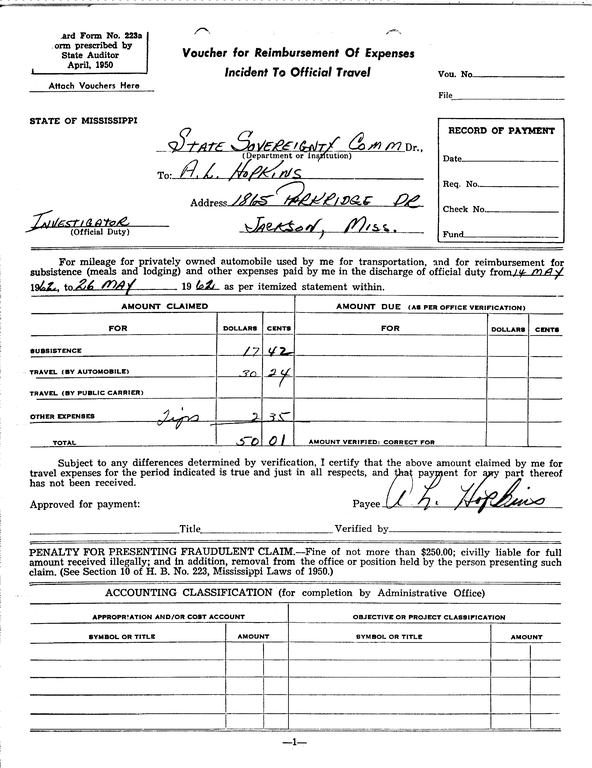 ard Form No. 223a
orm prescribed by
State Auditor
April, 1950
Attach Vouchers Here
Voucher for Reimbursement Of Expenses
Incident To Official Travel
Vou. No.
File
STATE OF MISSISSIPPI
STATE SOVEREIGNTY COMM Dr.,
(Department or Institution)
To: A.L. HOPKINS
Address 1865 PARKRIDGE DR
JACKSON, MISS.
INVESTIGATOR
(Official Duty)
RECORD OF PAYMENT
Date
Req. No.
Check No.
Fund
For mileage for privately owned automobile used by me for transportation, and for reimbursement for
subsistence (meals and lodging) and other expenses paid by me in the discharge of official duty from 14 MAY
1962, to 26 MAY 1962 as per itemized statement within.
AMOUNT CLAIMED AMOUNT DUE (AS PER OFFICE VERIFICATION)
FOR DOLLARS CENTS FOR DOLLARS CENTS
SUBSISTENCE 17 42
TRAVEL (BY AUTOMOBILE) 30 24
TRAVEL (BY PUBLIC CARRIER)
OTHER EXPENSES Tips 2 35
TOTAL 50 01 AMOUNT VERIFIED: CORRECT FOR
Subject to any differences determined by verification, I certify that the above amount claimed by me for
travel expenses for the period indicated is true and just in all respects, and that payment for any part thereof
has not been received.
Approved for payment: Payee A L. Hopkins
Title Verified by
PENALTY FOR PRESENTING FRAUDULENT CLAIM.—Fine of not more than $250.00; civilly liable for full
amount received illegally; and in addition, removal from the office or position held by the person presenting such
claim. (See Section 10 of H. B. No. 223, Mississippi Laws of 1950.)
ACCOUNTING CLASSIFICATION (for completion by Administrative Office)
APPROPRIATION AND/OR COST ACCOUNT OBJECTIVE OR PROJECT CLASSIFICATION
SYMBOL OR TITLE AMOUNT SYMBOL OR TITLE AMOUNT
—1—